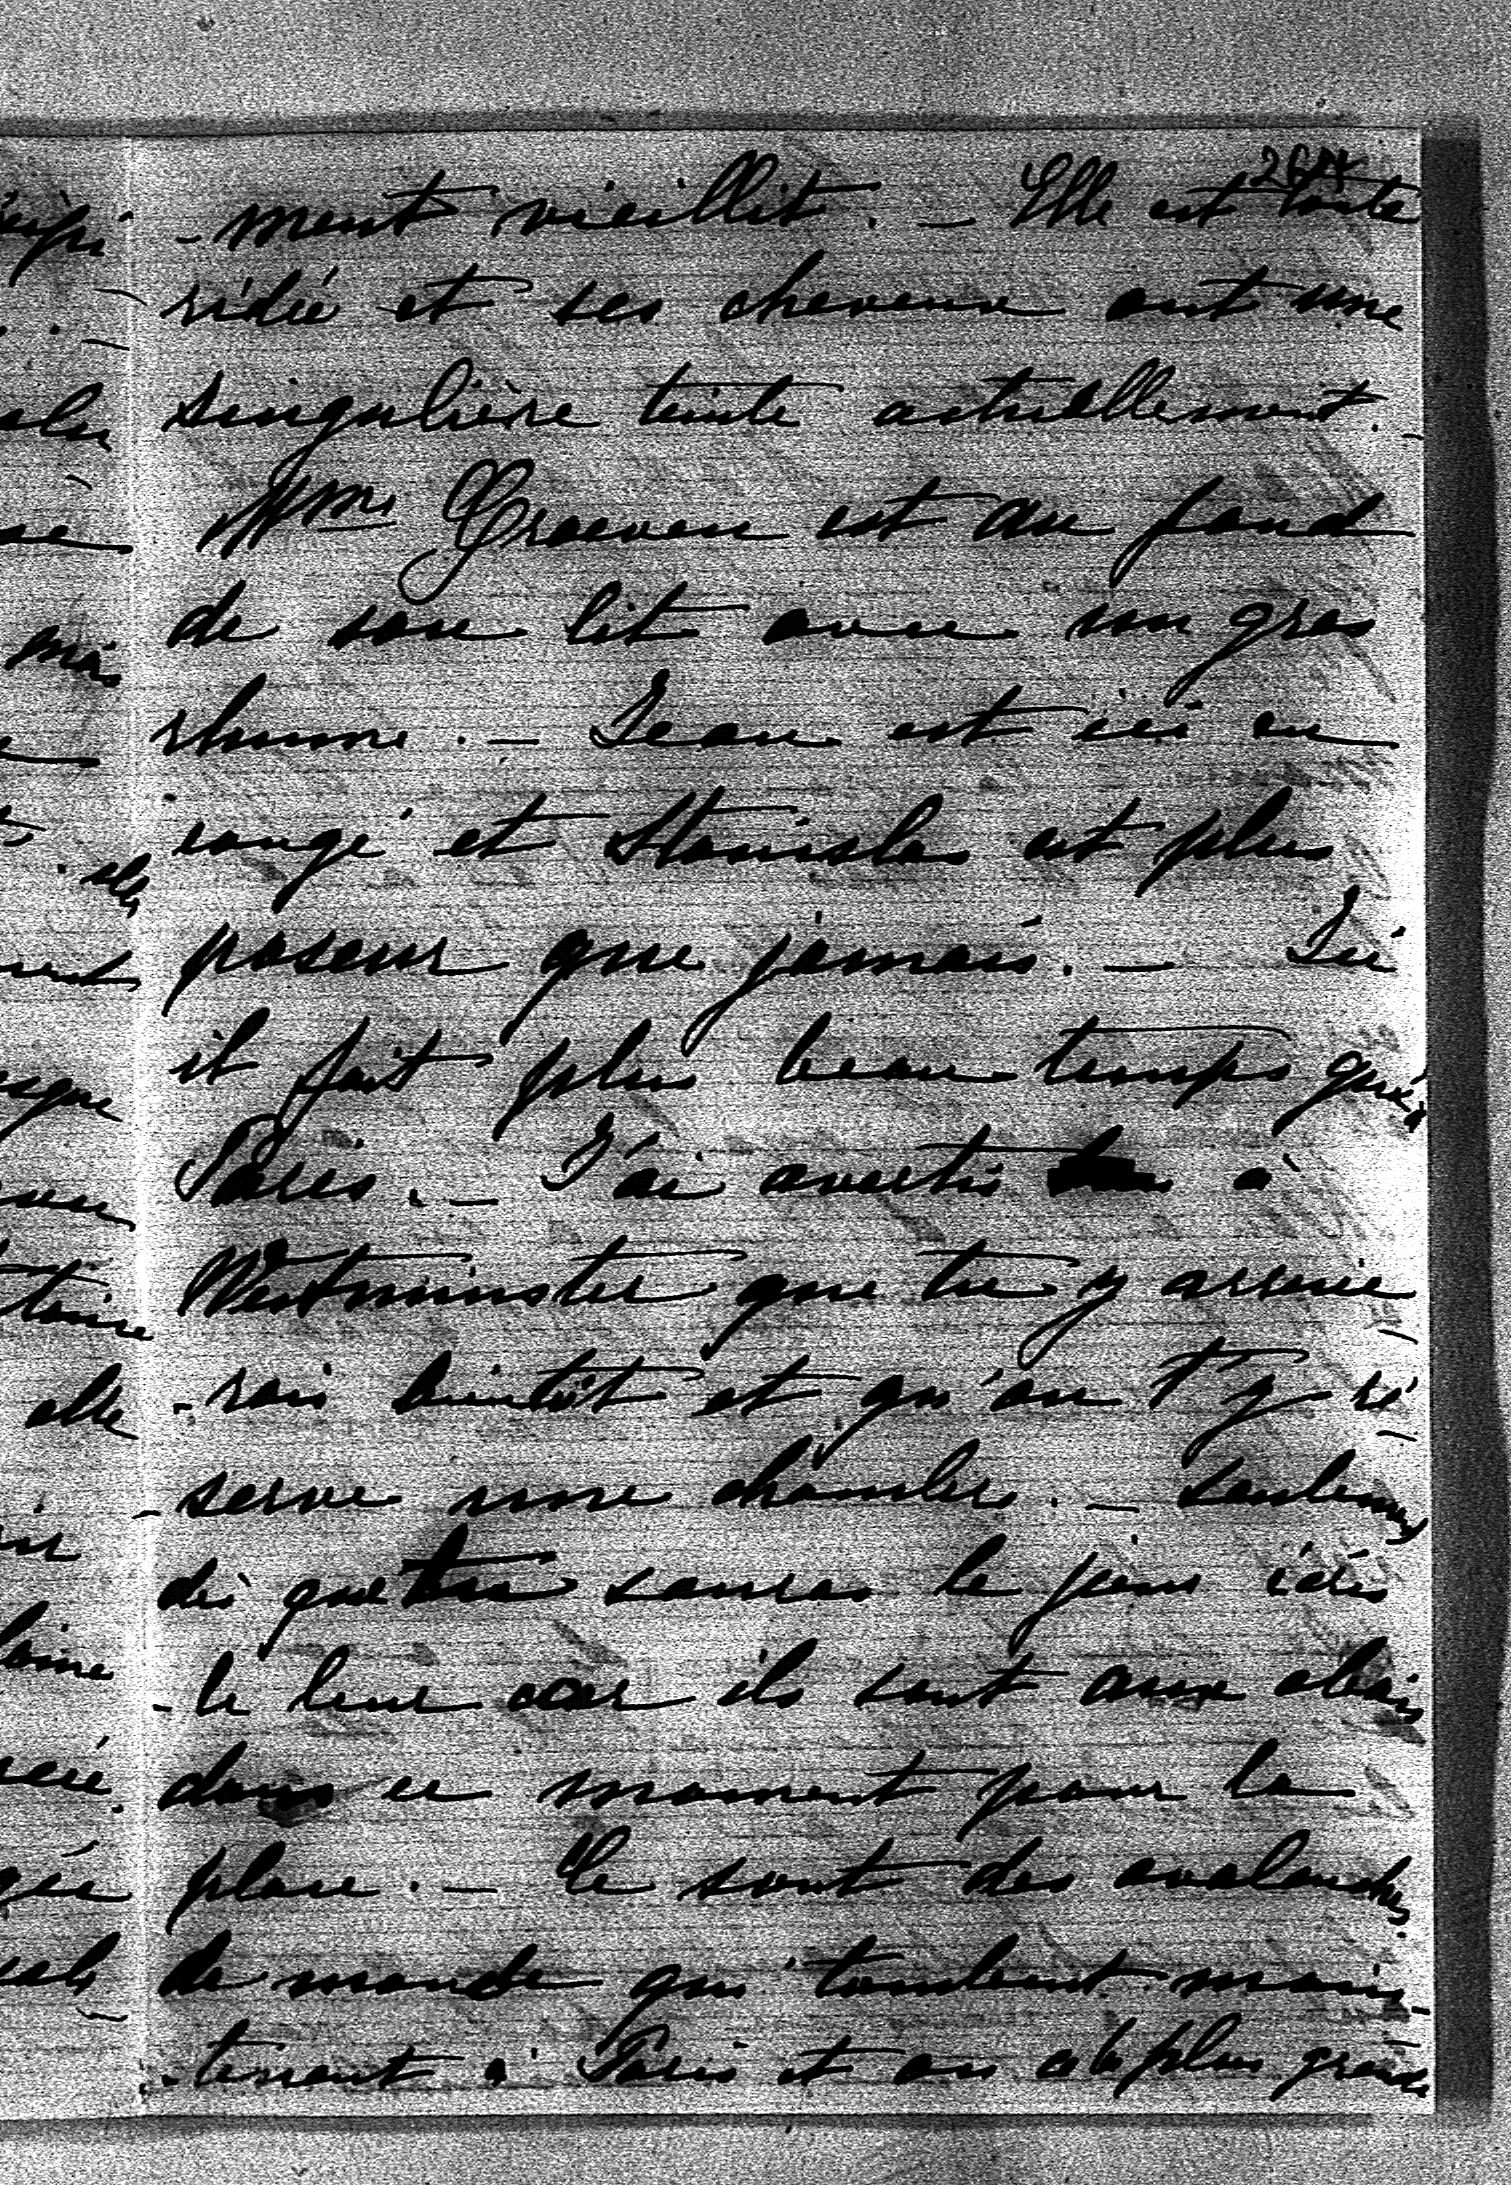 -ment vieillit. — Elle est toute
ridée et ses cheveux ont une
singulière teinte actuellement. -
Mme Graeven est au fond
de son lit avec un gros
rhume. — Jean est ici en
congé et Stanislas est plus
poseur que jamais. — Ici
il fait plus beau temps qu'à
Paris. — J'ai averti à
Westminster que tu y arrive-
-rais bientôt et qu'on t'y ré-
-serve une chambre. — Seulement
dès que tu sauras le jour écris
-le leur car ils sont aux abois
dans ce moment pour la
place. — Ce sont des avalanches
de monde qui tombent main-
-tenant à Paris et on a la plus grande